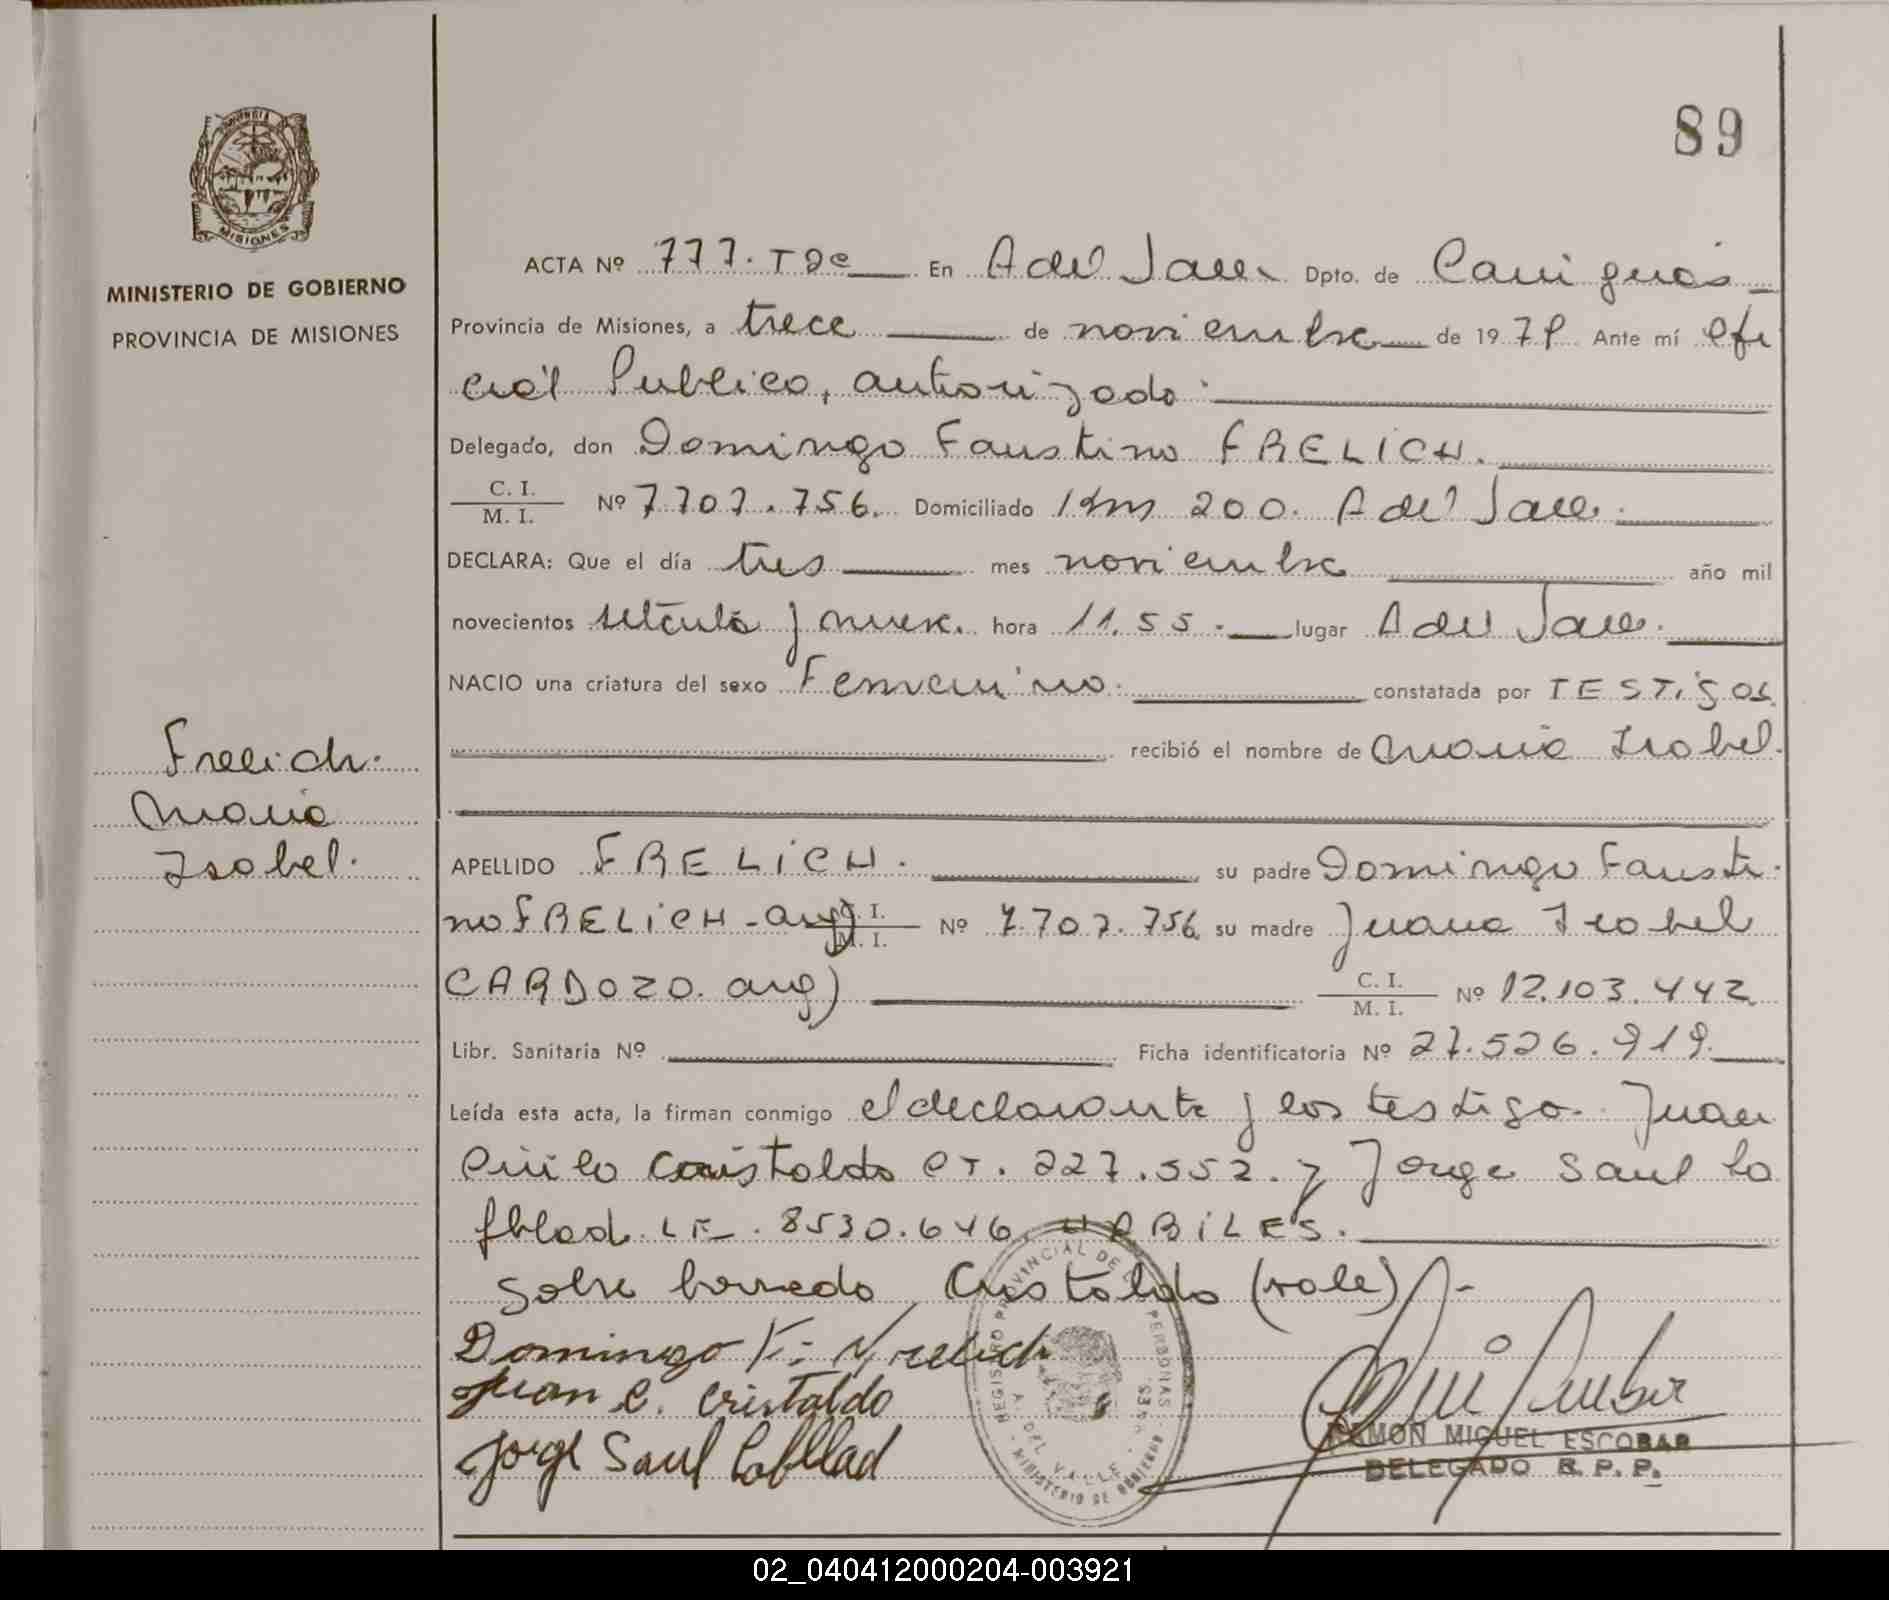 89
MINISTERIO DE GOBIERNO
PROVINCIA DE MISIONES
MISIONES
ACTA Nº 777. T 2º En A del Valle Dpto. de Cainguás
Provincia de Misiones, a trece de noviembre de 1979 Ante mí ofi
cial Publico, autorizado
Delegado, don Domingo Faustino FRELICH.
C. I.
M. I. Nº 7.707.756. Domiciliado Km 200. A del Valle.
DECLARA: Que el día tres mes noviembre año mil
novecientos setenta y nueve. hora 11.55. lugar A del Valle.
NACIO una criatura del sexo Femenino. constatada por TESTIGOS
recibió el nombre de Maria Isabel.
Frelich.
Maria
Isabel.
APELLIDO FRELICH. su padre Domingo Fausti
no FRELICH - arg) C. I.
M. I. Nº 7.707.756 su madre Juana Isabel
CARDOZO. arg) C. I.
M. I. Nº 12.103.442
Libr. Sanitaria Nº Ficha identificatoria Nº 27.526.919.
Leída esta acta, la firman conmigo el declarante y los testigo. Juan
Cristaldo 227.552. y Jorge Saul La
fblad. LE. 8530.646. HABILES.
Sobre borrado Cristaldo (vale) -
Domingo F. Frelich
Juan C. Cristaldo
Jorge Saul Lafblad
REGISTRO PROVINCIAL DE PERSONAS
A. DEL VALLE
MINISTERIO DE GOBIERNO
RAMON MIGUEL ESCOBAR
DELEGADO R. P. P.
02_040412000204-003921